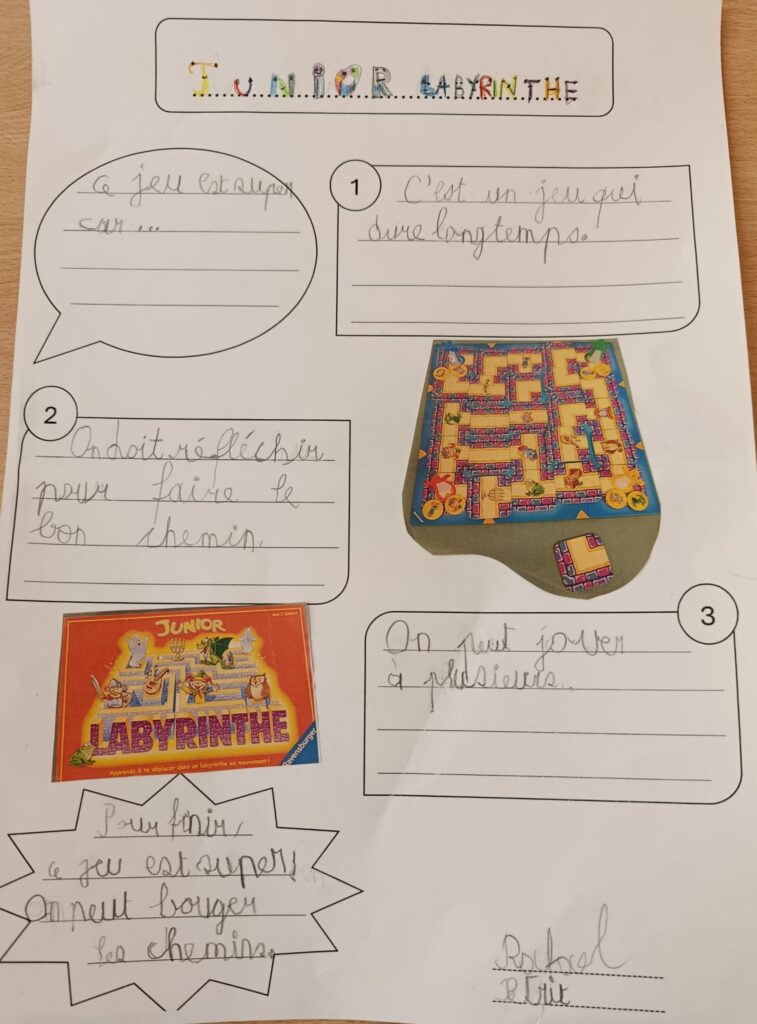 JUNIOR LABYRINTHE
ce jeu est super
car...
1
C'est un jeu qui
dure longtemps.
2
On doit réfléchir
pour faire le
bon chemin
JUNIOR
LABYRINTHE
Ravensburger
Apprends à te déplacer dans un labyrinthe en mouvement!
3
On peut jouer
à plusieurs.
Pour finir,
ce jeu est super!
On peut bouger
les chemins.